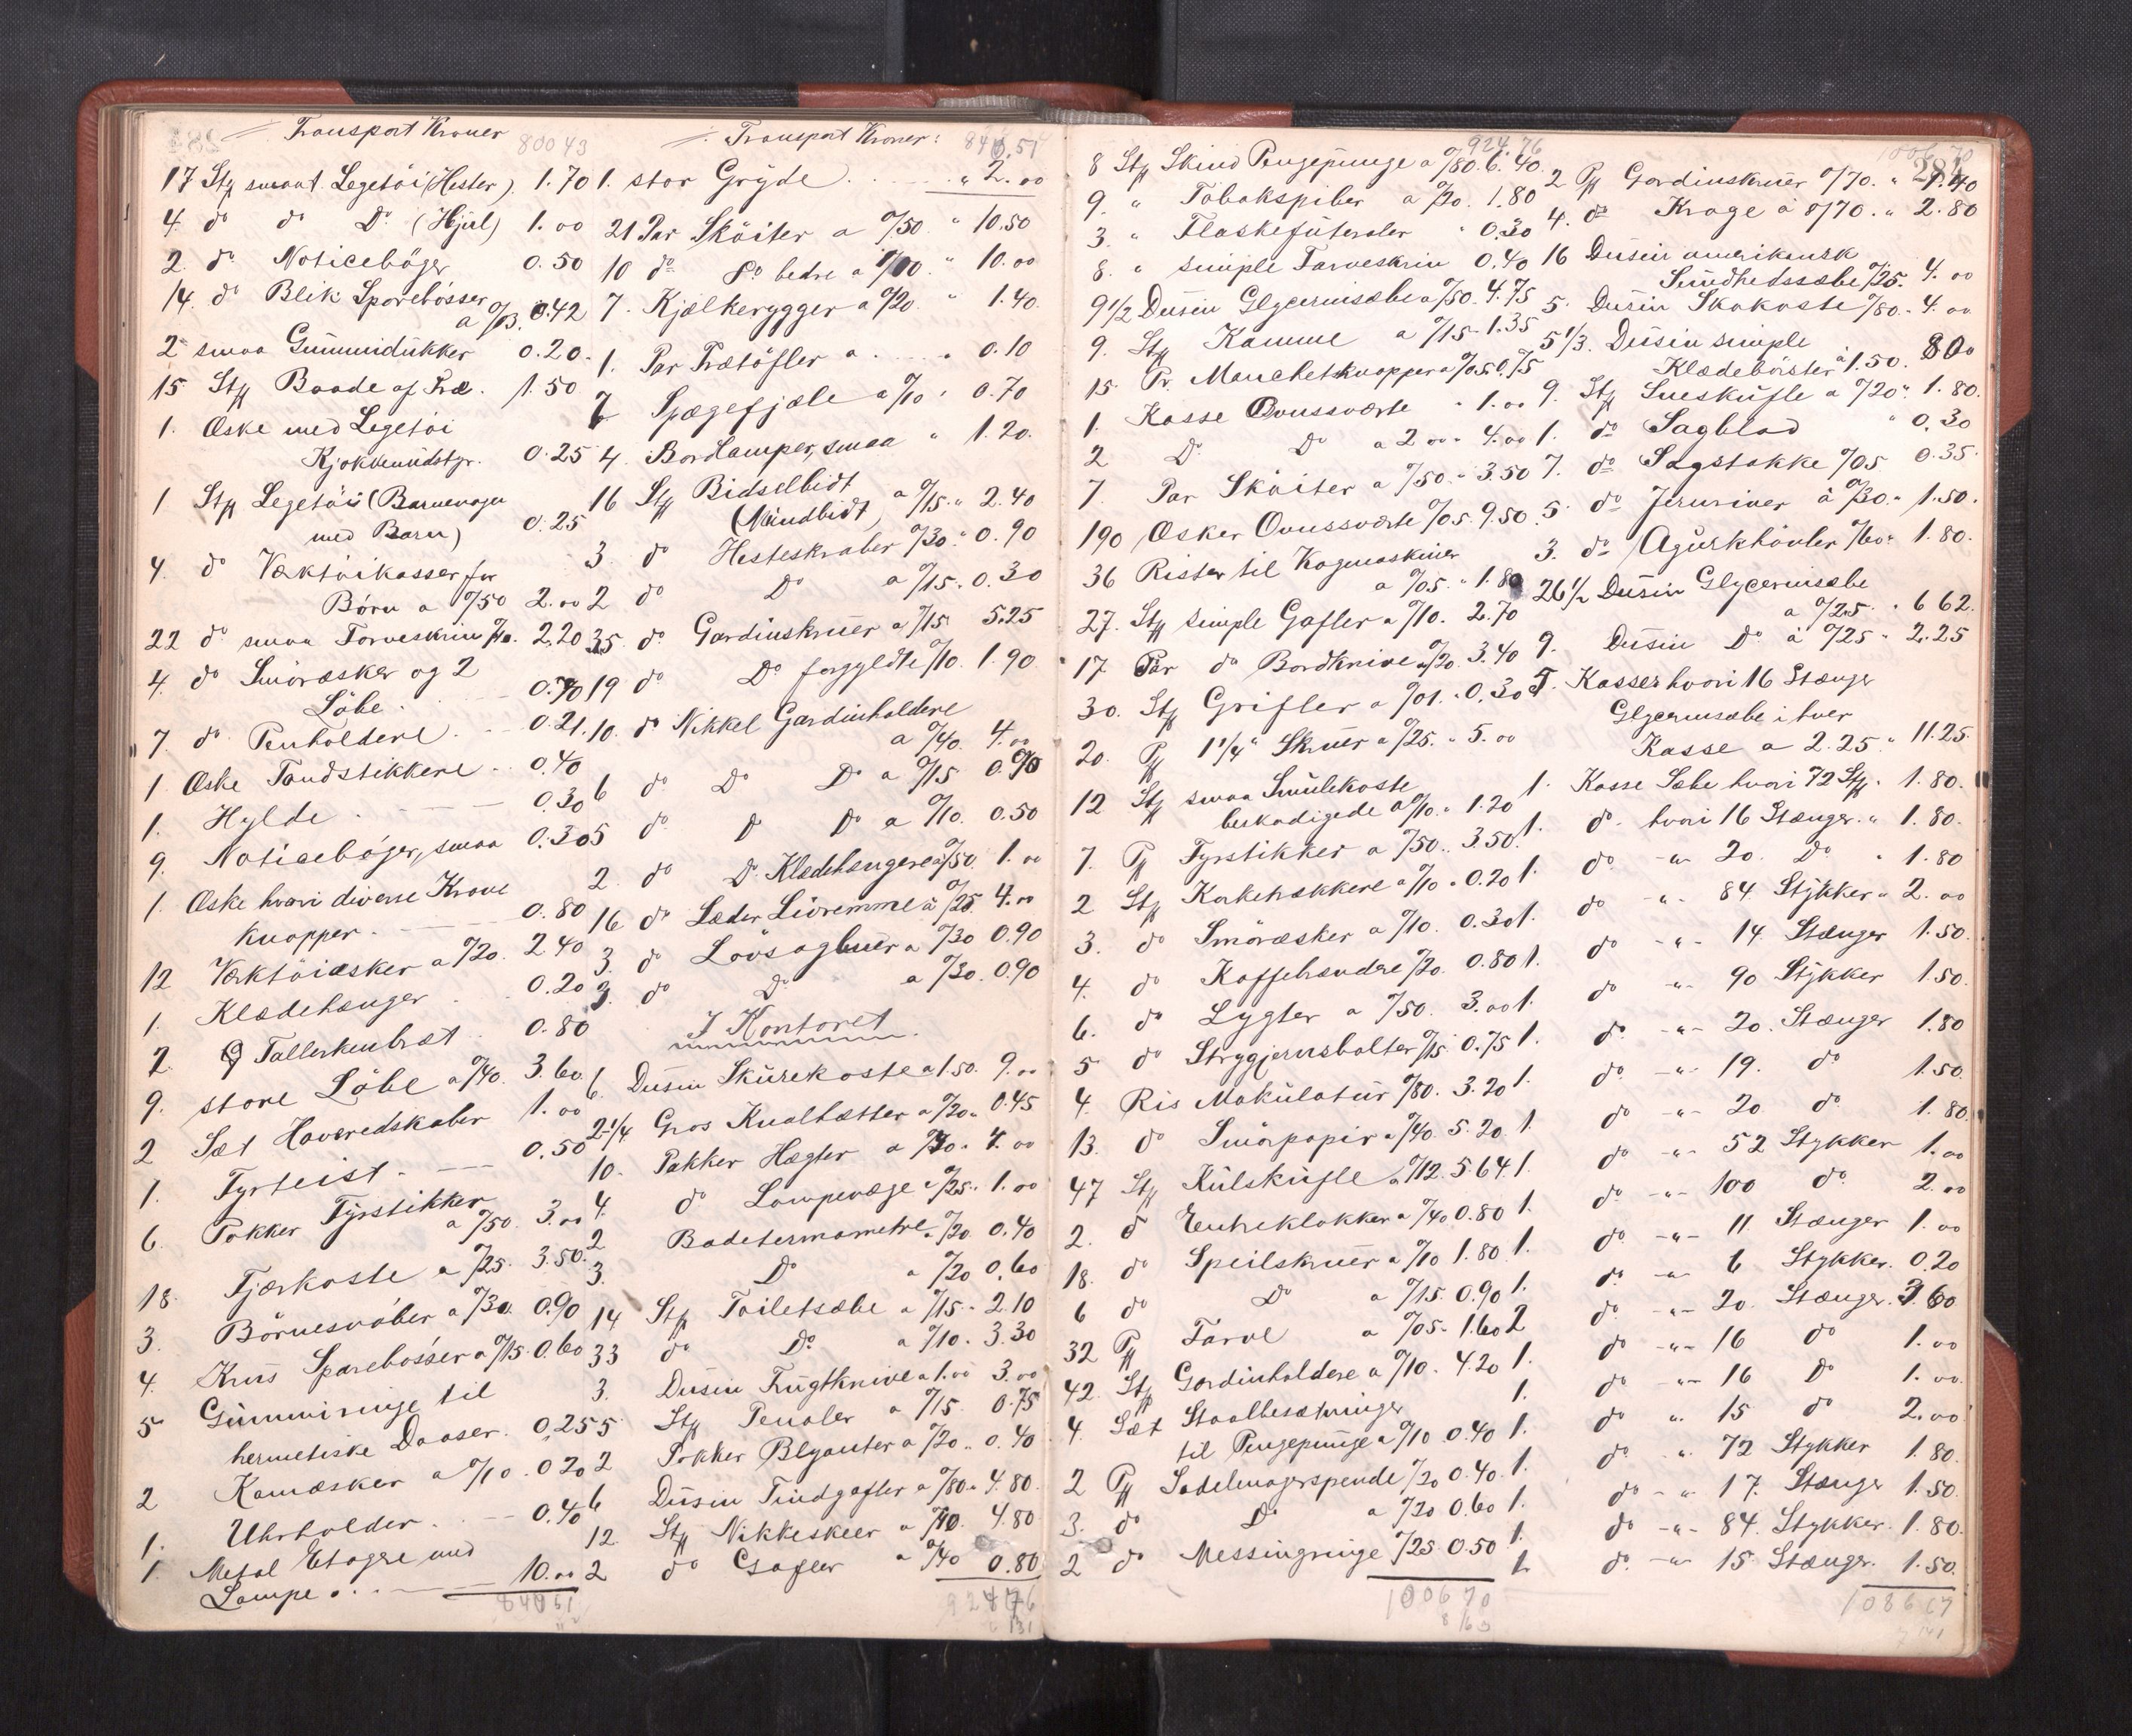 Transport Kroner 800 43
17 Stk smaat Legetöi (Hester) 1.70
4. do do Do (Hjul) 1.00
2. do Noticebøger 0.50
14. do Blik Sparebøsser
a 0/03. 0.42
2 smaa Gummidukker 0.20.
15. Stk Baade af Træ. 1.50
1. Æske med Legetøi
Kjøkkenudstyr. 0.25
1 Stk Legetöi (Barnevogn
med Barn) 0.25
4. do Værktøikasser for
Børn a 0/50 2.00
22 do smaa Farveskrin 0/10. 2.20
4. do Smøræsker og 2
Løbe. 0.70
7. do Penholdere 0.21.
1 Æske Tandstikkere 0.40
1. Hylde 0.30
9. Noticebøger, smaa 0.30
1. Æske hvori diverse Krave
knapper. 0.80
12 Værktøiæsker a 0/20. 2.40
1. Klædehænger 0.20
2. Tallerkenbræt 0.80
9. store Løbe a 0/40. 3.60
2 Sæt Haveredskaber 1.00
1. Tyrteist. 0.50
6. Pakker Tyrstikker
a 0/50. 3.00
18. Tjærkoste a 0/25. 3.50.
3. Börnesvøber a 0/30 0.90
4. Krus Sparebøsser a 0/15. 0.60
5 Gummiringe til
hermetiske Daaser. 0.25
2 Kamæsker a 0/10. 0 20
1. Uhrholder. 0.40
1. Metal Etagere med
Lampe 10.00
840 51
Transport Kroner: 840,51
1. stor Gryde " 2.00
21 Par Sköiter a 0/50 " 10.50
10 do Do bedre a 1/00. " 10.00
7. Kjælkerygger a 0/20 " 1.40.
1. Par Trætøfler a " 0.10
7 Spægefjæle a 0/10 " 0.70
4. Bordlamper, smaa " 1.20.
16 Stk Bidselbidt
(Mundbidt) a 0/15. " 2.40
3. do Hesteskraber 0/30. " 0.90
2 do Do a 0/15. 0.30
35. do Gardinskruer a 0/15. 5.25
19 do Do forgyldte 0/10. 1.90.
10. do Nikkel Gardinholdere
a 0/40. 4.00
6 do Do Do a 0/15 0.90
5 do Do Do a 0/10. 0.50
2. do Do Klædehængere a 0/50. 1.00
16 do Læder Livremme a 0/25 4.00
3. do Løvsagbuer a 0/30 0.90
3. do Do a 0/30. 0.90
I Kontoret.
6. Dusin Skurekoste a 1.50. 9.00
2 1/4 Gros Knalhætter a 0/20. 0.45
10. Pakker Hægter a 0/40. 4.00
4. do Lampevæge a 0/25. 1.00
2 Badetermometre 0/20 0.40
3. Do a 0/20 0.60
14 Stk Toiletsæbe a 0/15. 2.10
33 do Do a 0/10. 3.30
3. Dusin Frugtknive a 1.00 3.00
5 Stk Penaler a 0/15. 0.75
2 Pakker Blyanter a 0/20. 0.40
6 Dusin Tindgafler a 0/80. 4.80.
12. Stk Nikkeskeer a 0/40. 4.80
2 do Gafler a 0/40 0.80
924 76
131
924 76
8 Stk Skind Pengepunge a 0/80. 6.40.
9. " Tobakspiber a 0/20. 1.80
3. " Flaskefuteraler " 0.30
8. " simple Farveskrin 0.40
9 1/2 Dusin Glycerinsæbe a 0/50. 4.75
9. Stk Kamme a 0/15. 1.35
15. Pr. Manchetknapper a 0/05. 0.75
1. Kasse Ovnsværte " 1.00
2 Do Do a 2.00. 4.00
7. Par Sköiter a 0/50. 3.50
190 Æsker Ovnsværte 0/05. 9.50
36 Rister til Kogmaskiner
a 0/05. " 1.80
27. Stk simple Gafler a 0/10. 2.70
17. Par do Bordknive a 0/20. 3.40
30. Stk Grifler a 0/01. 0.30
20. Pk 1 1/4" Skruer a 0/25. " 5.00
12 Stk smaa Smulekoste
beskadigede a 0/10. 1.20
7. Pk Tyrstikker a 0/50. 3.50.
2 Stk Kakehakkere a 0/10. 0.20
3. do Smøræsker a 0/10. 0.30
4. do Kaffebrændere 0/20. 0.80
6. do Lygter a 0/50. 3.00
5 do Strygjernsbolter 0/15. 0.75
4. Ris Makulatur 0/80. 3.20
13. do Smørpapir a 0/40. 5.20
47 Stk Kulskufle a 0/12. 5.64
2. do Enkeklokker a 0/40 0.80
18. do Speilskruer a 0/10 1.80
6 do Do a 0/15. 0.90
32 Pk Farve a 0/05. 1.60
42. Stk Gardinholdere a 0/10. 4.20
4. Sæt Staalbesætninger
til Pengepunge a 0/10 0.40
2 Pk Sadelmagerspende 0/20 0.40.
3. do Do a 0/20 0.60
2 do Messingringe 0/25 0.50
1006 70
8 163
1006 70
284
2 Pk Gardinskruer 0/70. " 1.40
4. do Krage à 0/70. " 2.80
16 Dusin amerikansk
Sundhedssæbe 0/25. 4.00
5. Dusin Skokoste 0/80. 4.00
5 1/3. Dusin simple
Klædebørster a 1.50. 8 00
9. Stk Sneskufle a 0/20. 1.80.
1. do Sagblad " 0.30
7. do Sagstokke 0/05 0.35.
5. do Jernriver a 0/30. 1.50.
3. do Agurkhøvler 0/60. 1.80.
26 1/2 Dusin Glycerinsæbe
a 0/25. " 6 62.
9. Dusin Do a 0/25 " 2.25
5. Kasser hvori 16 Stænger
Glycerinsæbe i hver
Kasse a 2.25. " 11.25.
1. Kasse Sæbe hvori 72 Stk. 1.80.
1. do hvori 16 Stænger. " 1.80.
1. do -"- 20. Do " 1.80
1. do -"- 84. Stykker " 2.00
1. do -"- 14. Stænger 1.50.
1. do -"- 90 Stykker 1.50.
1. do -"- 20. Stænger 1.80
1. do -"- 19. do 1.50.
1. do -"- 20 do 1.80
1. do -"- 52 Stykker 1.00
1. do -"- 100 do 2.00
1. do -"- 11 Stænger 1.00
1. do -"- 6 Stykker. 0.20
2 do -"- 20. Stænger. 3.60
1. do -"- 16 do 1.00
1. do -"- 16 Do 1.00
1. do " 15 do 2.00
1. do " 72 Stykker 1.80.
1. do -"- 17. Stænger 1.50.
1. do -"- 84. Stykker. 1.80.
1. do -"- 15. Stænger. 1.50.
1086 67
7 141